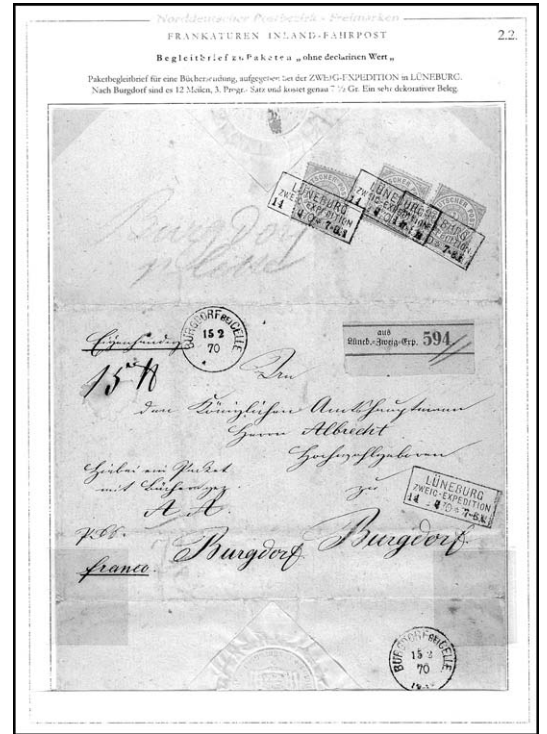 Norddeutscher Postbezirk - Freimarken
FRANKATUREN INLAND-FAHRPOST
2.2.
Begleitbrief zu Paketen „ohne declarirten Wert„
Paketbegleitbrief für eine Büchersendung, aufgegeben bei der ZWEIG-EXPEDITION in LÜNEBURG.
Nach Burgdorf sind es 12 Meilen, 3. Progr.- Satz und kostet genau 7 ½ Gr. Ein sehr dekorativer Beleg.
LÜNEBURG
ZWEIG-EXPEDITION
LÜNEBURG
ZWEIG-EXPEDITION
Burgdorf
BURGDORF BEI CELLE
15 2
70
aus
Lüneb.-Zweig-Exp. 594
Eigenhändig
15
den Königlichen Amtshauptmann
Herrn Albrecht
Hochwohlgeboren
zu
Hiebei ein Packet
mit Büchern gez.
A. A.
LÜNEBURG
ZWEIG-EXPEDITION
Burgdorf Burgdorf
franco.
BURGDORF BEI CELLE
15 2
70